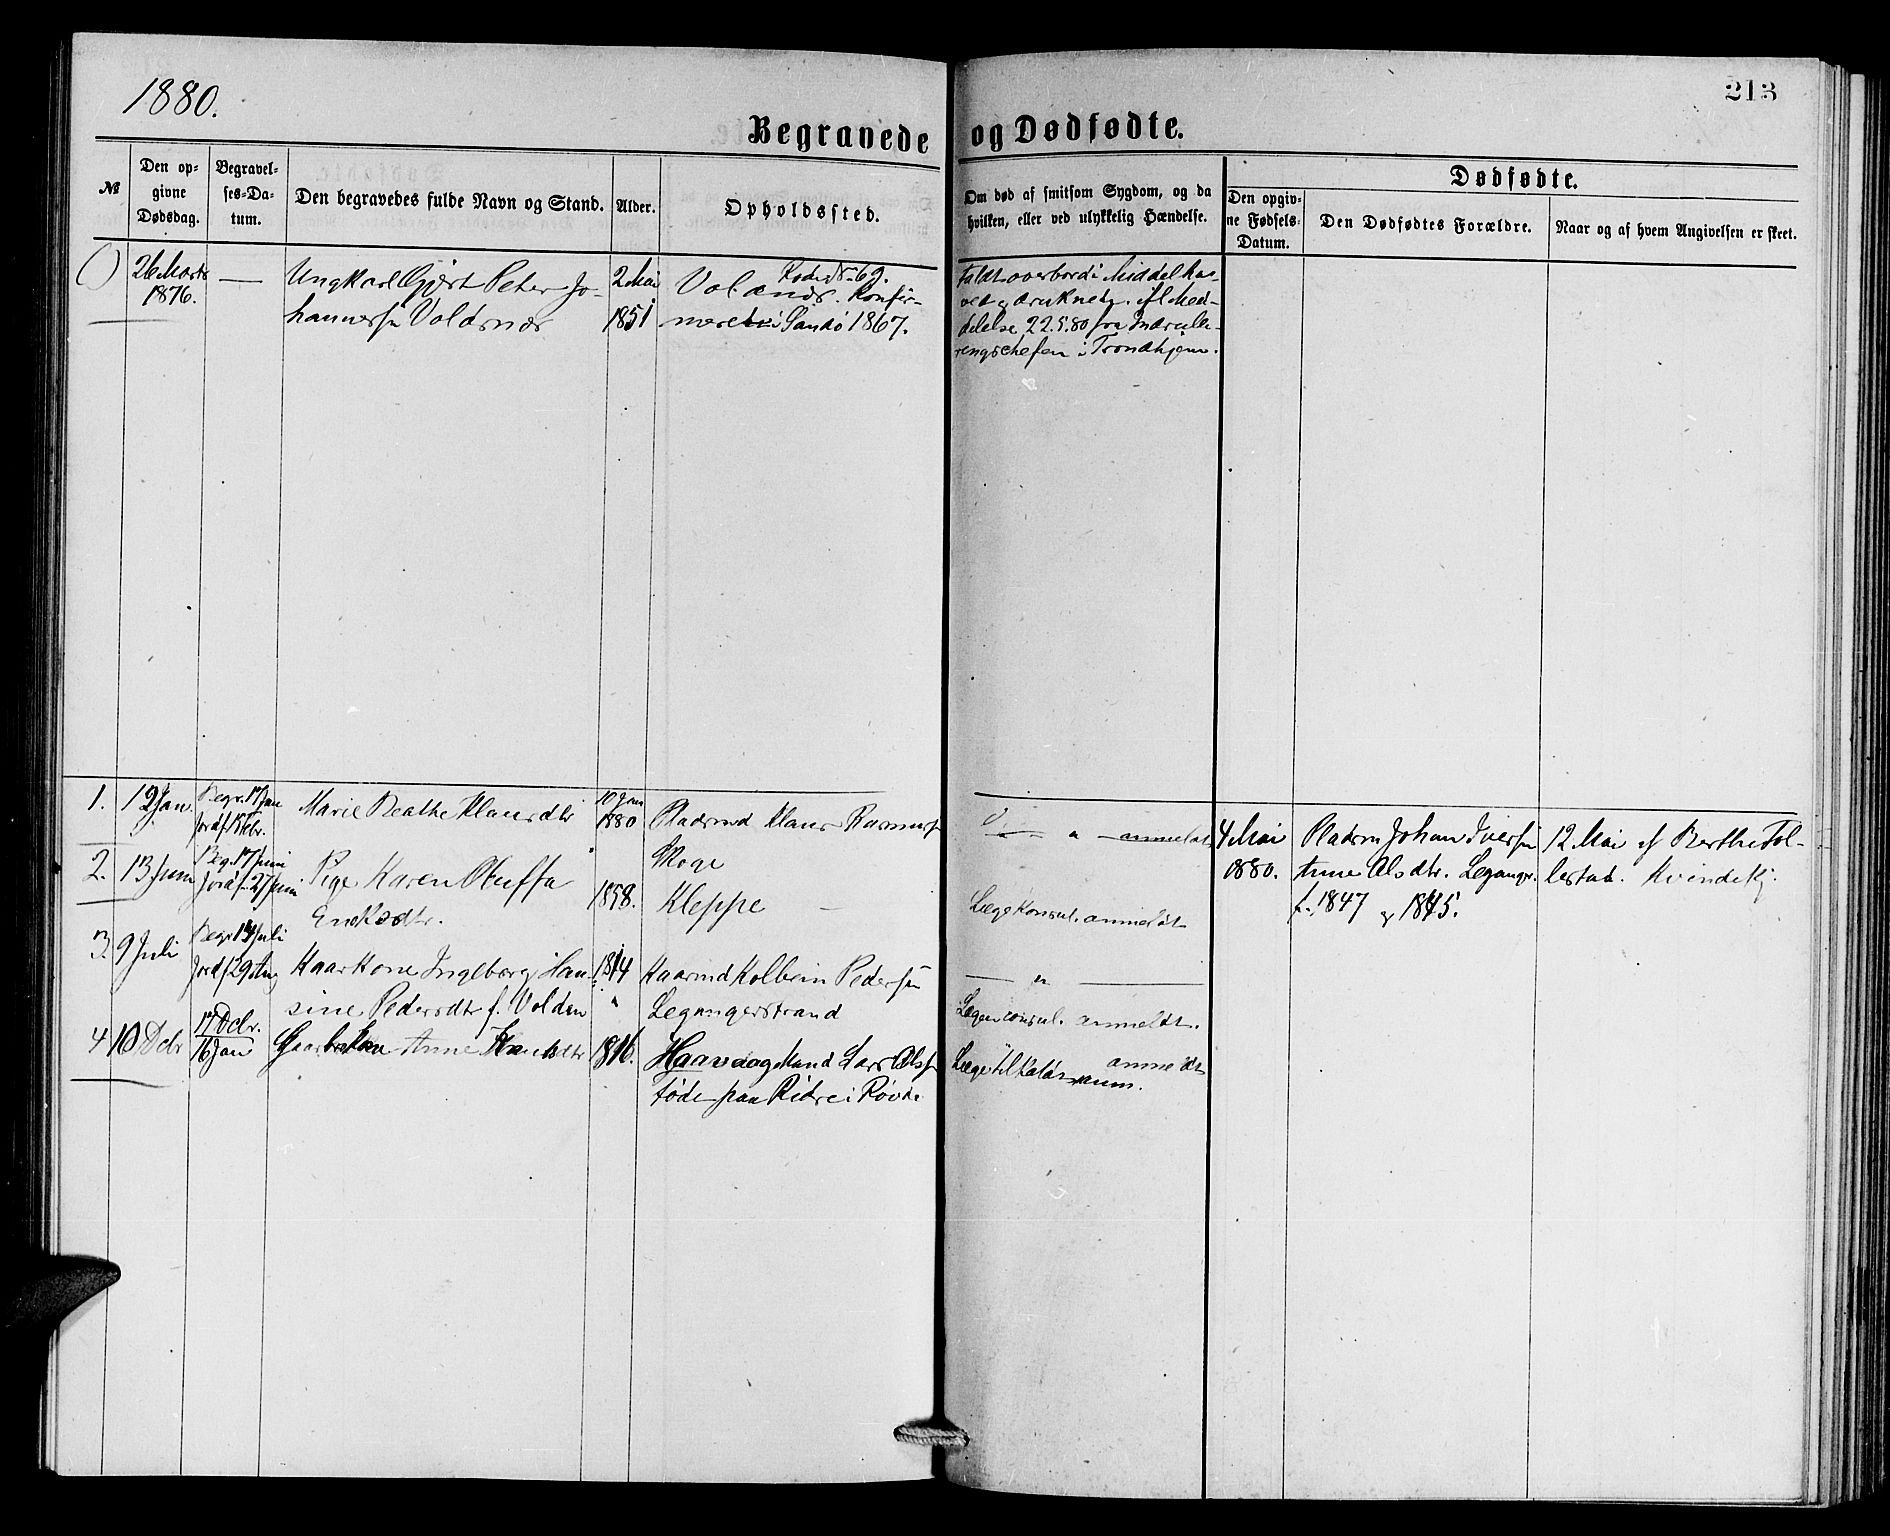 1880.
213
Begravede og Dødfødte.
№
Den op=
givne
Dødsdag.
Begravel=
ses=Da=
tum.
Den begravedes fulde Navn og Stand.
Alder.
Opholdssted.
Om død af smitsom Sygdom, og da
hvilken, eller ved ulykkelig Hændelse.
Dødfødte.
Den opgiv=
ne Fødsels=
Datum.
Den Dødfødtes Forældre.
Naar og af hvem Angivelsen er skeet.
26 Marts
1876.
—
Ungkarl Gjert Peter Jo-
hannessn Voldsnæs
2 Mai
1851
Rode Nr. 69.
Volsnæs. Konfir-
meret i Sandø 1867.
Faldt overbord i Middelhavet
og druknede. Afl Med-
delelse 22.5.80 fra Indrulle-
ringschefen i Trondhjem.
1.
12 Jan.
Begr. 17 Jan
Jordf. 15 Febr.
Marie Beathe Klausdtr
10 Jan
1880
Pladsmd Klaus Rasmuss
Moge
" anmeldt
4 Mai
1880.
Pladsm Johan Iversn
Anne Olsdtr. Leganger.
f. 1847 og 1845.
12 Mai af Berthe Tol-
lestad. Kvindekj.
2.
13 Juni
Beg. 17 Juni
Jordf. 27 Juni
Pige Karen Oluffa
Enoksdtr.
1858.
Kleppe
Læge konsul. anmeldt
3.
9 Juli
Begr 13 Juli
Jordf. 29 Aug
Kaarkone Ingeborg Han-
sine Pedersdtr f. Volden
1814
Kaarmd Kolbein Pedersn
Legangerstrand
— " —
Lægen consul. anmeldt.
4
10 Decbr
17 Decbr.
16 Jan
Anne
1816.
Haavdag Mand Lars Olsn
føde paa Eidre i Røvde
Læge tilkaldt anmeldt